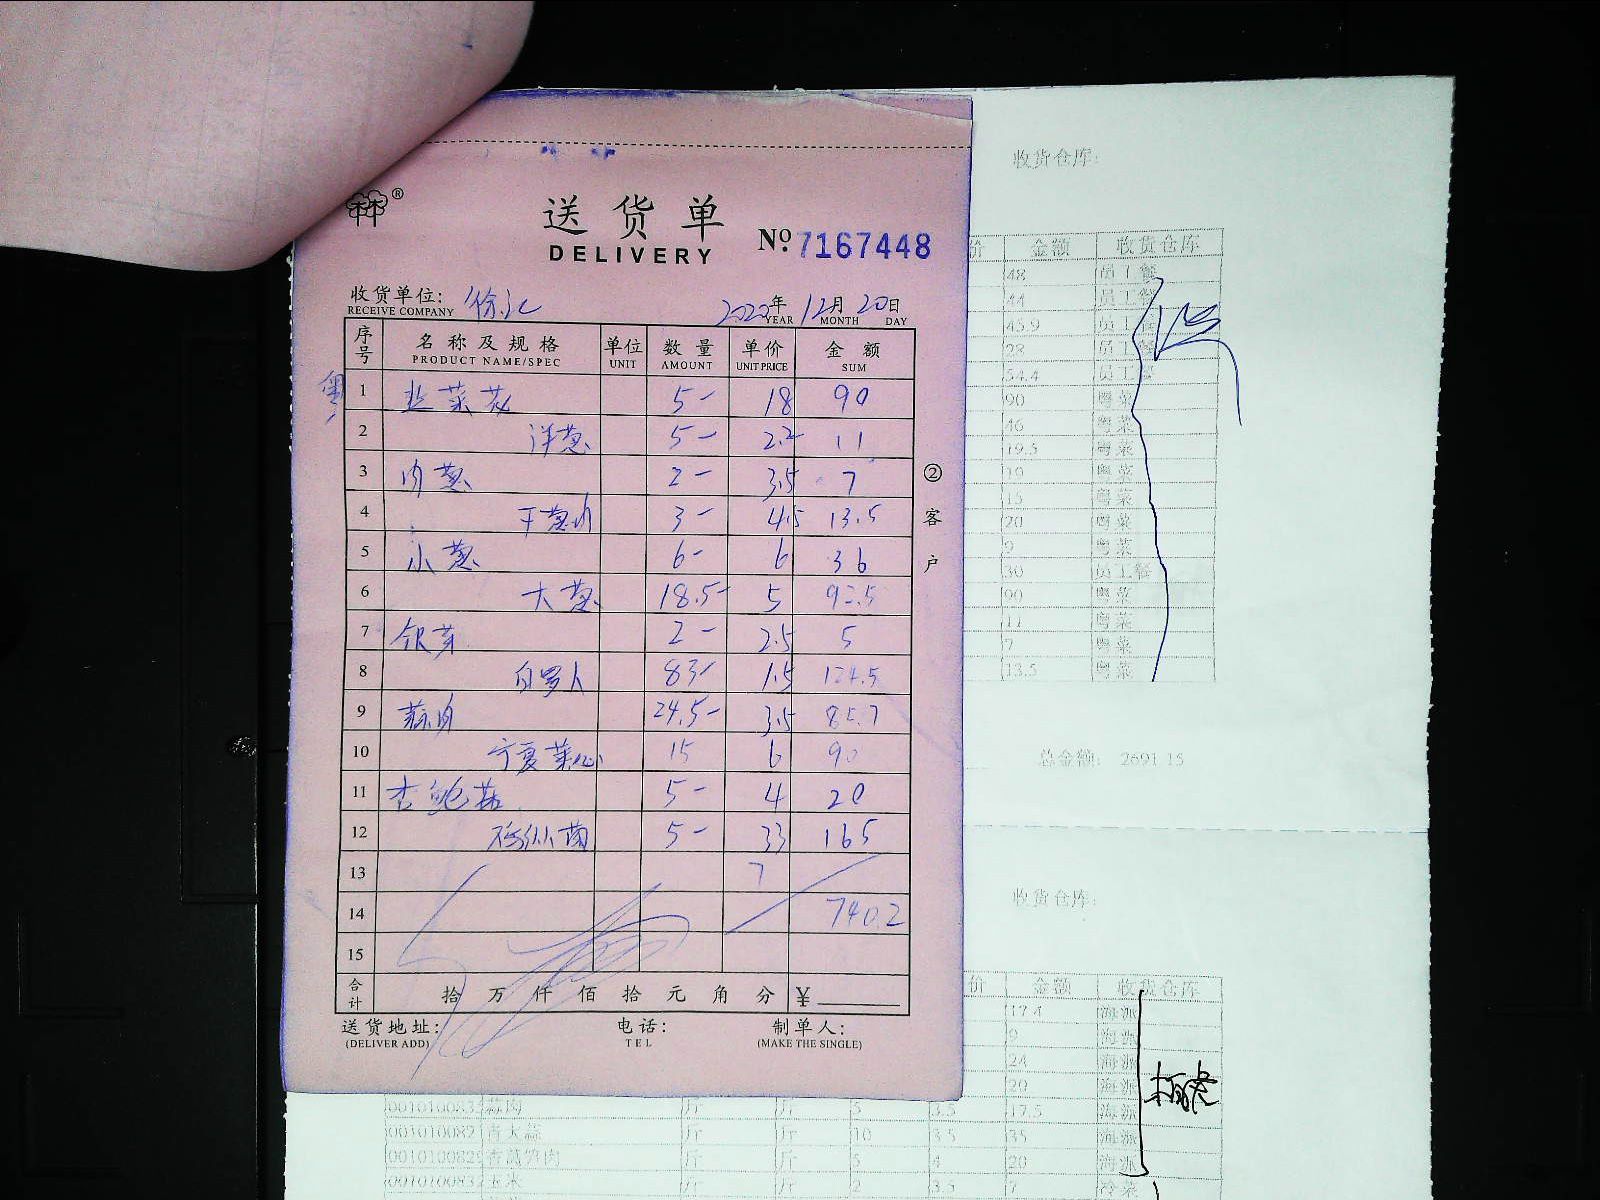 送货单
DELIVERY
№ 7167448
收货单位:
RECEIVE COMPANY
2022年 12月 20日
YEAR MONTH DAY
序号 名称及规格 单位 数量 单价 金额
PRODUCT NAME/SPEC UNIT AMOUNT UNIT PRICE SUM
粤
1 韭菜花 5- 18 90
2 洋葱 5- 2.2 11
3 肉葱 2- 3.5 7
4 干葱肉 3- 4.5 13.5
5 小葱 6- 6 36
6 大葱 18.5- 5 92.5
7 银芽 2- 2.5 5
8 白罗卜 83- 1.5 124.5
9 蒜肉 24.5- 3.5 85.7
10 宁夏菜心 15 6 90
11 杏鲍菇 5- 4 20
12 5- 33 165
13
14 740.2
15
合计 拾 万 仟 佰 拾 元 角 分 ¥
送货地址: 电话: 制单人:
(DELIVER ADD) TEL (MAKE THE SINGLE)
② 客户
收货仓库:
价 金额 收货仓库
48 员工餐
44 员工餐
45.9 员工餐
28 员工餐
54.4 员工餐
90 粤菜
46 粤菜
19.5 粤菜
19 粤菜
15 粤菜
20 粤菜
9 粤菜
30 员工餐
90 粤菜
11 粤菜
7 粤菜
13.5 粤菜
总金额: 2691.15
收货仓库:
价 金额 收货仓库
17.4 海派
9 海派
24 海派
20 海派
蒜肉 斤 斤 5 3.5 17.5 海派
青大蒜 斤 斤 10 3.5 35 海派
斤 斤 5 4 20 海派
玉米 斤 斤 2 3.5 7 冷菜